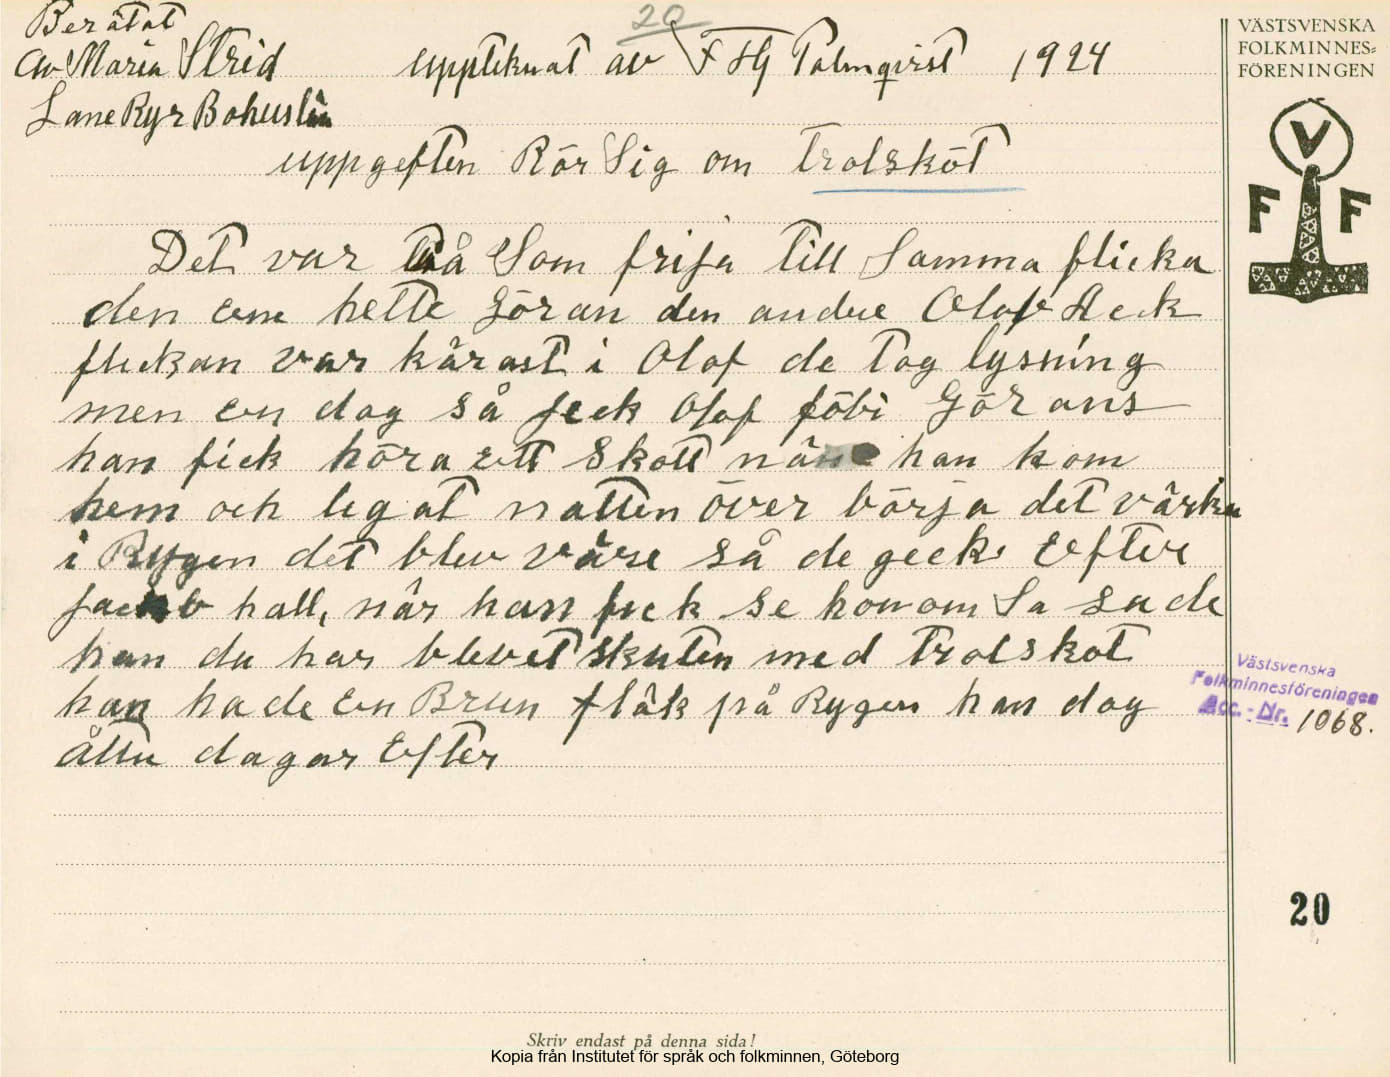 Berätat
av Maria Strid uppteknat av F Hj Palmqvist 1924
Lane Ryr Bohuslän
20
uppgeften Rör Sig om trolsköt
Det var två Som frija till Samma flicka
den ene hette Göran den andre Olof Aeck
flickan var kärast i Olof de tog lysning
men en dag så feck Olof föbi Görans
han fick höra ett Skott när han kom
hem och legat natten över börja det värka
i Rygen det blev väre så de geck Efter
Jackob hall, når han fick se honom Sa sade
han du har blevet skuten med trolskot
han hade en Brun fläk på Rygen han dog
åtta dagar Efter
VÄSTSVENSKA
FOLKMINNES-
FÖRENINGEN
V
F F
Västsvenska
Folkminnesföreningen
Acc.-Nr. 1068.
20
Skriv endast på denna sida!
Kopia från Institutet för språk och folkminnen, Göteborg